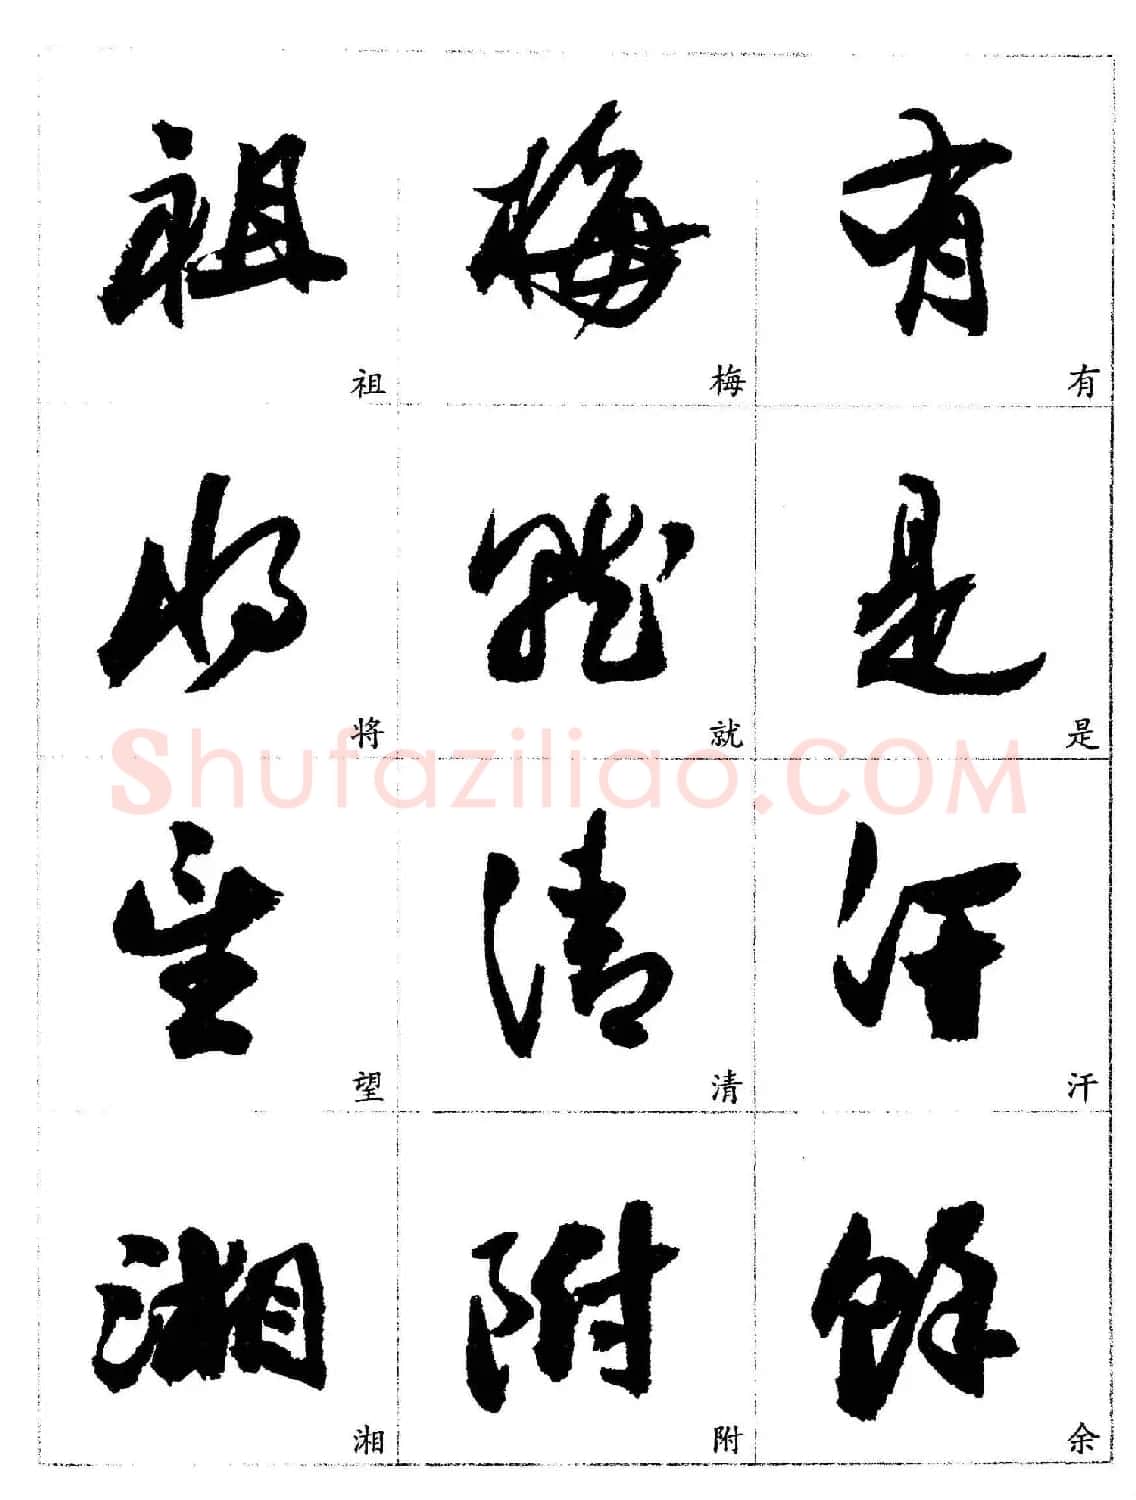 祖 梅 有
祖 梅 有
将 就 是
将 就 是
Shufaziliao.COM
望 清 汗
望 清 汗
湘 附 餘
湘 附 余